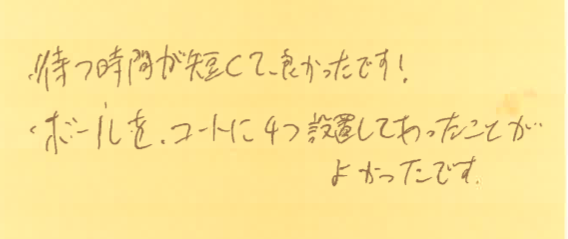 ・待つ時間が短くて、良かったです!
・ボールを、コートに4つ設置してあったことが
よかったです.